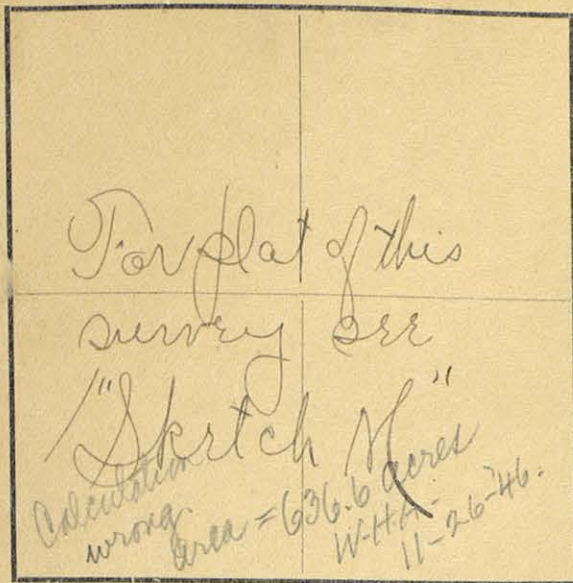 For plat of this
survey see
"Sketch M"
Calculation
wrong
area = 636.6 acres
W.H.A.-
11-26-'46.